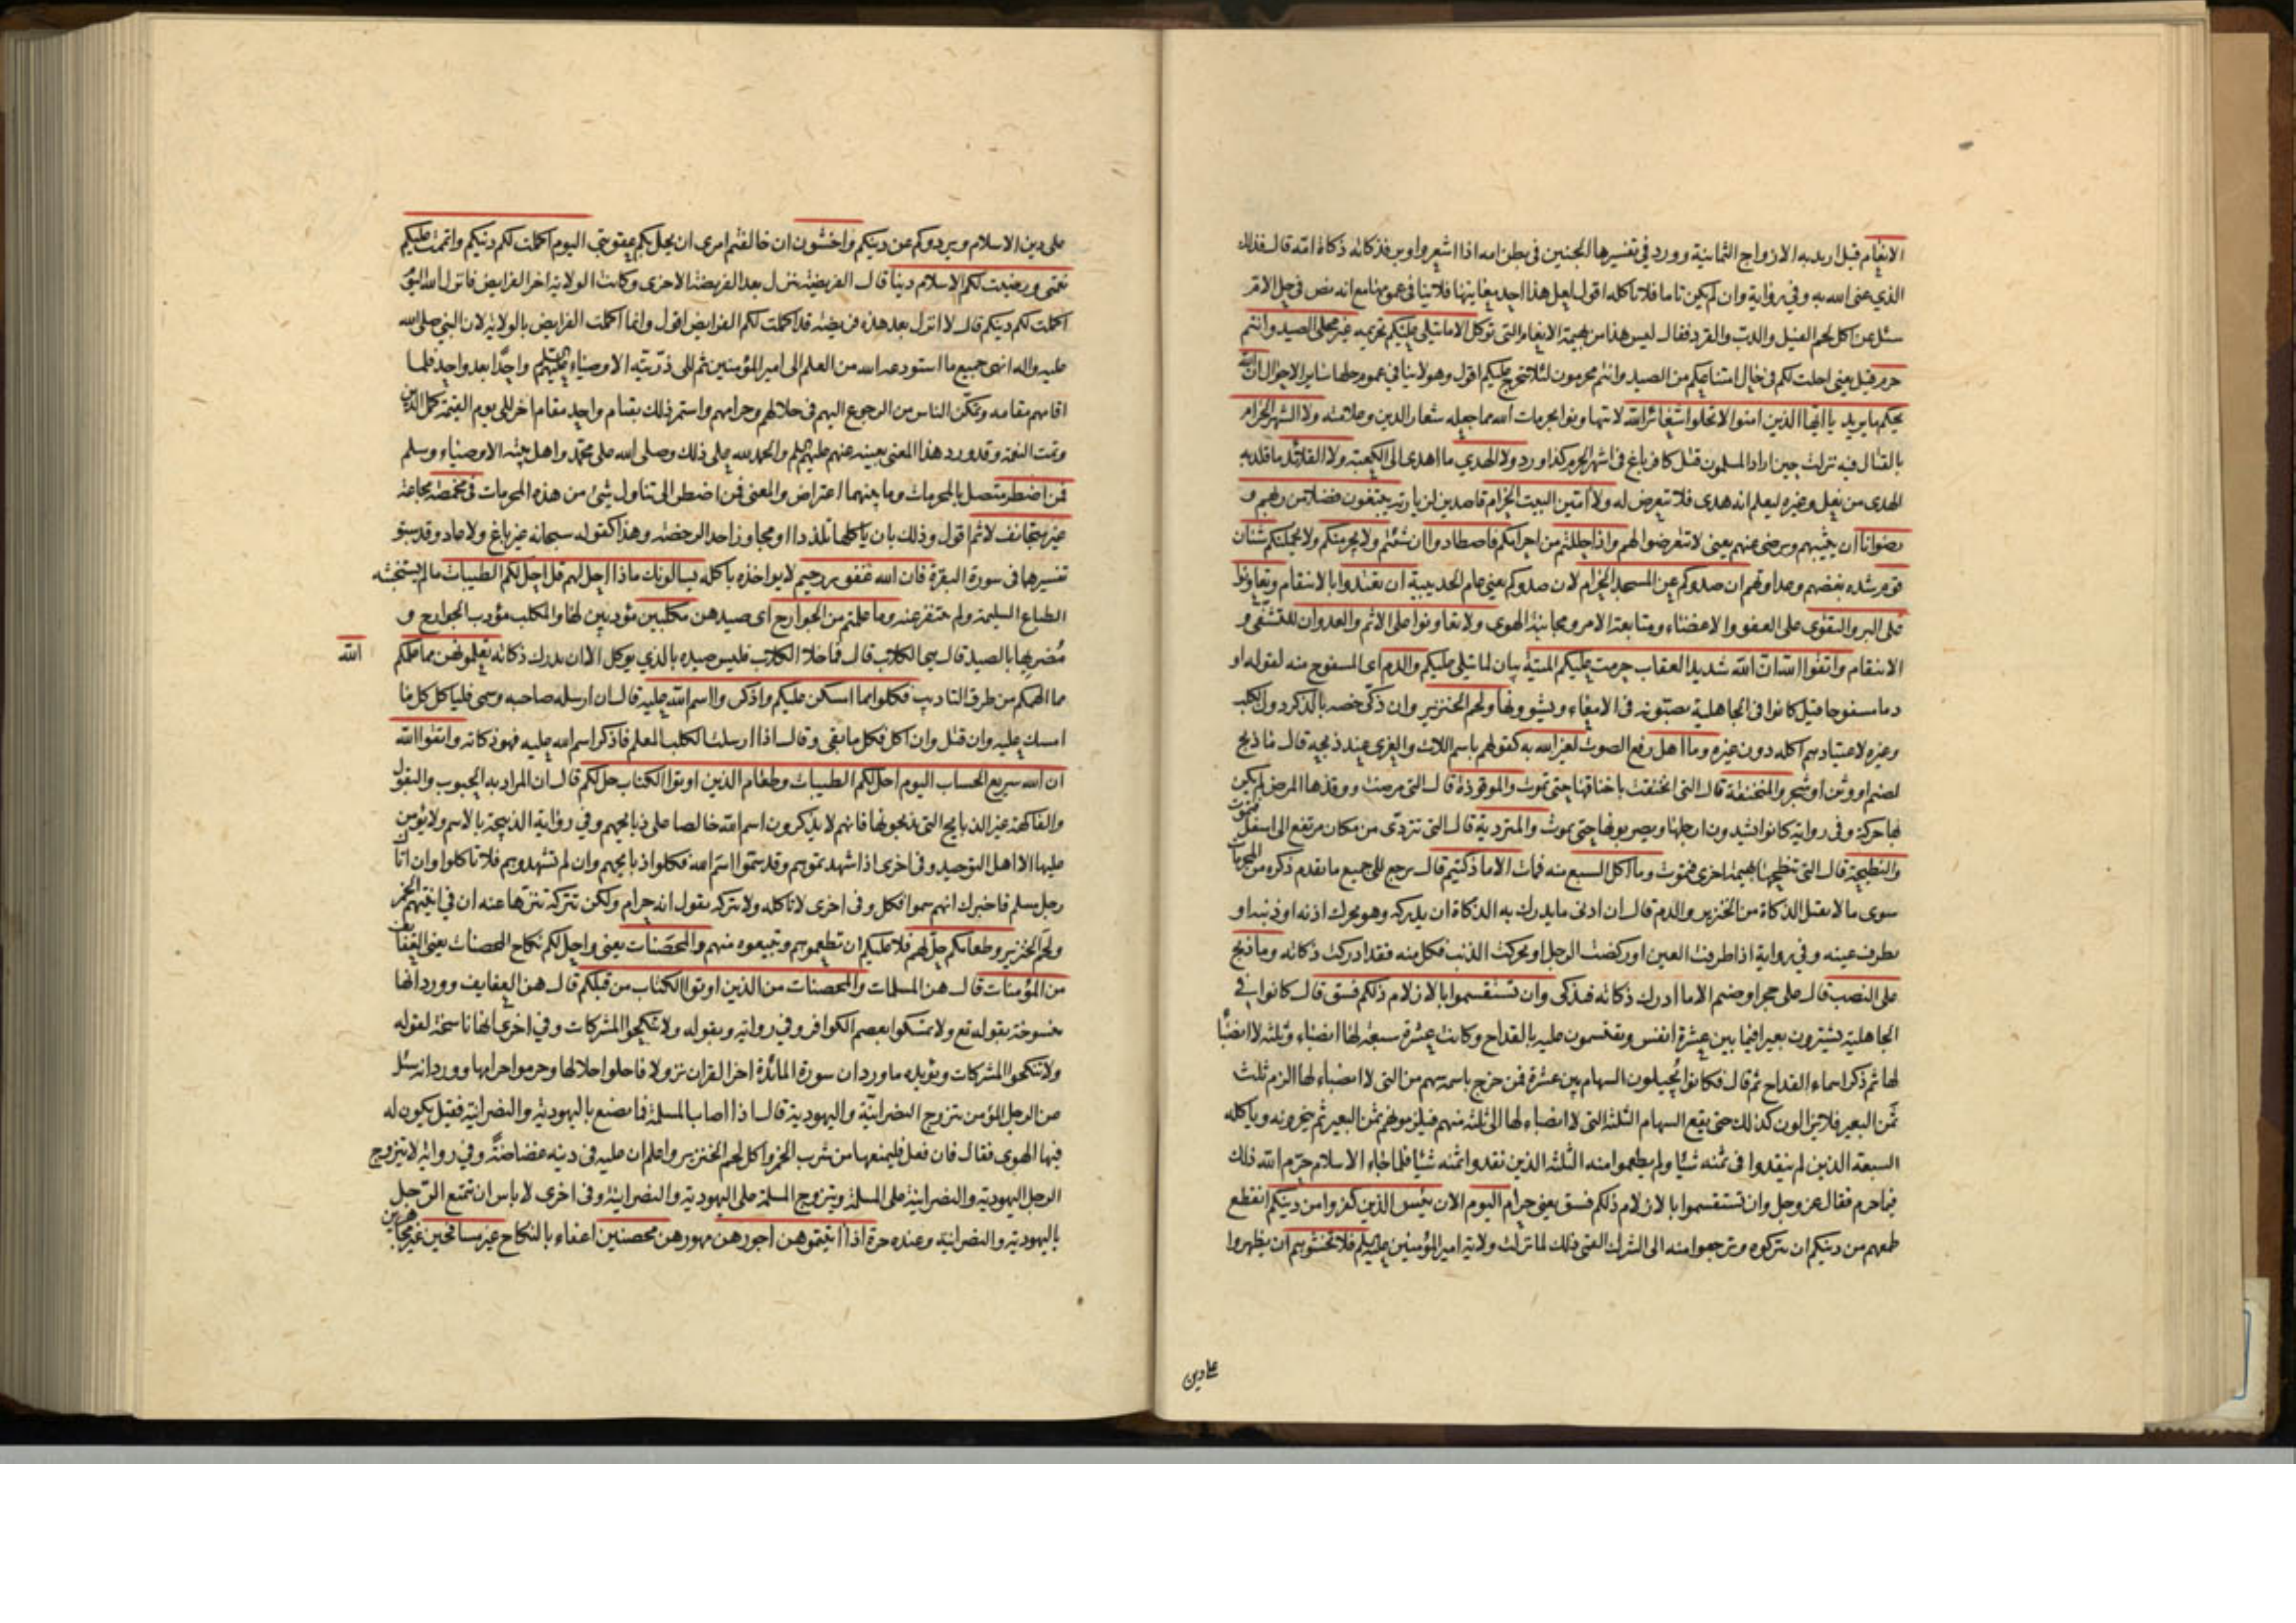 الانعام قيل اريد به الازواج الثمانية وورد في تفسيرها الجنين في بطن امه اذا اشعر واوبر فذكاته ذكاة امه قال فذلك
الذي عنى الله به وفي رواية وان لم يكن تاما فلا تأكله اقول لعل هذا احد معانيها فلا ينافي عمومها مع انه نص في حل الام
سئل عن اكل لحم الفيل والدب والقرد فقال ليس هذا من بهيمة الانعام التي توكل الا ما يتلى عليكم تحريمه غير محلى الصيد وانتم
حرم قيل يعني احلت لكم في حال امتناعكم من الصيد وانتم محرمون لئلا تتحرج عليكم اقول وهو لا ينافي عموم حلها ساير الاحوال ان الله
يحكم ما يريد يا ايها الذين امنوا لا تحلوا شعائر الله لا تتهاونوا بحرمات الله مما جعله شعار الدين وعلامته ولا الشهر الحرام
بالقتال فيه نزلت حين اراد المسلمون قتل كافر باغ في اشهر الحرم كذا ورد ولا الهدي ما اهدى الى الكعبة ولا القلائد ما قلد به
الهدى من نعل وغيره ليعلم انه هدى فلا يتعرض له ولا امين البيت الحرام قاصدين لزيارته يبتغون فضلا من ربهم و
رضوانا ان يثيبهم ويرضى عنهم يعني لا تتعرضوا لهم واذا حللتم من احرامكم فاصطادوا ان شئتم ولا يجرمنكم ولا يحملنكم شنان
قوم شدة بغضهم وعداوتهم ان صدوكم عن المسجد الحرام لان صدوكم يعني عام الحديبية ان تعتدوا بالانتقام وتعاونوا
على البر والتقوى على العفو والاغضاء ومتابعة الامر ومجانبة الهوى ولا تعاونوا على الاثم والعدوان للتشفي و
الانتقام واتقوا الله ان الله شديد العقاب حرمت عليكم الميتة بيان لما يتلى عليكم والدم اى المسفوح منه لقوله او
دما مسفوحا قيل كانوا في الجاهلية يصبونه في الامعاء ويشوونها ولحم الخنزير وان ذكى خصه بالذكر دون الكلب
وغيره لاعتيادهم اكله دون غيره وما اهل رفع الصوت لغير الله به كقولهم باسم اللات والعزى عند ذبحه قال ما ذبح
لصنم او وثن او شجر والمنخنقة قال التي انخنقت باخناقها حتى تموت والموقوذة قال التي مرضت ووقذها المرض لم يكن
بها حركة وفي رواية كانوا يشدون ارجلها ويضربونها حتى تموت والمتردية قال التي تتردى من مكان مرتفع الى اسفل فتموت
والنطيحة قال التي تنطحها بهيمة اخرى فتموت وما اكل السبع منه فمات الا ما ذكيتم قال يرجع الى جميع ما تقدم ذكره من المحرمات
سوى ما لا يقبل الذكاة من الخنزير والدم قال ان ادنى ما يدرك به الذكاة ان يدركه وهو يحرك اذنه او ذنبه او
يطرف عينه وفي رواية اذا طرفت العين او ركضت الرجل او تحركت الذنب فكل منه فقد ادركت ذكاته وما ذبح
على النصب قال على حجر او صنم الا ما ادرك ذكاته فيذكى وان تستقسموا بالازلام ذلكم فسق قال كانوا في
الجاهلية يشترون بعيرا فيما بين عشرة انفس ويقتسمون عليه بالقداح وكانت عشرة سبعة لها انصباء وثلثة لا انصباء
لها ثم ذكر اسماء القداح ثم قال فكانوا يجيلون السهام بين عشرة فمن خرج باسمه سهم من التي لا انصباء لها الزم ثلث
ثمن البعير فلا يزالون كذلك حتى يقع السهام الثلثة التي لا انصباء لها الى ثلثة منهم فيلزمونهم ثمن البعير ثم ينحرونه وياكله
السبعة الذين لم ينقدوا في ثمنه شيئا ولم يطعموا منه الثلثة الذين نقدوا ثمنه شيئا فلما جاء الاسلام حرم الله ذلك
فيما حرم فقال عز وجل وان تستقسموا بالازلام ذلكم فسق يعني حرام اليوم الان يئس الذين كفروا من دينكم انقطع
طمعهم من دينكم ان تتركوه وترجعوا منه الى الشرك القمي ذلك لما نزلت ولاية امير المؤمنين عليه السلم فلا تخشوهم ان يظهروا
على دين
على دين الاسلام ويردوكم عن دينكم واخشون ان خالفتم امرى ان يحل بكم عقوبتي اليوم اكملت لكم دينكم واتممت عليكم
نعمتى ورضيت لكم الاسلام دينا قال الفريضة تنزل بعد الفريضة الاخرى وكانت الولاية اخر الفرايض فانزل الله اليوم
اكملت لكم دينكم قال لا انزل بعد هذه فريضة قد اكملت لكم الفرايض اقول وانما اكملت الفرايض بالولاية لان النبي صلى الله
عليه واله انهى جميع ما استودعه الله من العلم الى امير المؤمنين ثم الى ذريته الاوصياء عليهم السلم واحدا بعد واحد فلما
اقامهم مقامه وتمكن الناس من الرجوع اليهم في حلالهم وحرامهم واستمر ذلك بقيام واحد مقام اخر الى يوم القيمة كمل الدين
وتمت النعمة وقد ورد هذا المعنى بعينه عنهم عليهم السلم والحمد لله على ذلك وصلى الله على محمد واهل بيته الاوصياء وسلم
فمن اضطر متصل بالمحرمات وما بينهما اعتراض والمعنى فمن اضطر الى تناول شيء من هذه المحرمات في مخمصة مجاعة
غير متجانف لاثم اقول وذلك بان ياكلها تلذذا او مجاوزا حد الرخصة وهذا كقوله سبحانه غير باغ ولا عاد وقد سبق
تفسيرها في سورة البقرة فان الله غفور رحيم لا يواخذه باكله يسالونك ماذا احل لهم قل احل لكم الطيبات ما لم يستخبثه
الطباع السليمة ولم تتنفر عنه وما علمتم من الجوارح اى صيدهن مكلبين مؤدبين لها والمكلب مؤدب الجوارح و
مضريها بالصيد قال هي الكلاب قال فما خلا الكلاب فليس صيده بالذي يوكل الا ان يدرك ذكاته تعلمونهن مما علمكم الله
مما الهمكم من طرق التاديب فكلوا مما امسكن عليكم واذكروا اسم الله عليه قال ان ارسله صاحبه وسمى فلياكل كل ما
امسك عليه وان قتل وان اكل فكل ما بقى وقال اذا ارسلت الكلب المعلم فاذكر اسم الله عليه فهو ذكاته واتقوا الله
ان الله سريع الحساب اليوم احل لكم الطيبات وطعام الذين اوتوا الكتاب حل لكم قال ان المراد به الحبوب والبقول
والفاكهة غير الذبايح التي يذبحونها فانهم لا يذكرون اسم الله خالصا على ذبايحهم وفي رواية الذبيحة بالاسم ولا يؤمن
عليها الا اهل التوحيد وفى اخرى اذا شهدتموهم وقد سموا اسم الله فكلوا ذبايحهم وان لم تشهدوهم فلا تاكلوا وان اتاك
رجل مسلم فاخبرك انهم سموا فكل وفى اخرى لا تاكله ولا تتركه تقول انه حرام ولكن تتركه تنزها عنه ان في انيتهم الخمر
ولحم الخنزير وطعامكم حل لهم فلا عليكم ان تطعموهم وتبيعوه منهم والمحصنات يعنى واحل لكم نكاح المحصنات يعنى العفايف
من المؤمنات قال هن المسلمات والمحصنات من الذين اوتوا الكتاب من قبلكم قال هن العفايف وورد انها
منسوخة بقوله تع ولا تمسكوا بعصم الكوافر وفي رواية وبقوله ولا تنكحوا المشركات وفي اخرى انها ناسخة لقوله
ولا تنكحوا المشركات ويؤيده ما ورد ان سورة المائدة اخر القران نزولا فاحلوا حلالها وحرموا حرامها وورد انه سئل
عن الرجل المؤمن يتزوج النصرانية واليهودية قال اذا اصاب المسلمة فما يصنع باليهودية والنصرانية فقيل يكون له
فيها الهوى فقال فان فعل فليمنعها من شرب الخمر واكل لحم الخنزير واعلم ان عليه في دينه غضاضة وفي رواية لا يتزوج
الرجل اليهودية والنصرانية على المسلمة ويتزوج المسلمة على اليهودية والنصرانية وفى اخرى لا باس ان يتمتع الرجل
باليهودية والنصرانية وعنده حرة اذا اتيتموهن اجورهن مهورهن محصنين اعفاء بالنكاح غير مسافحين غير مجاهرين